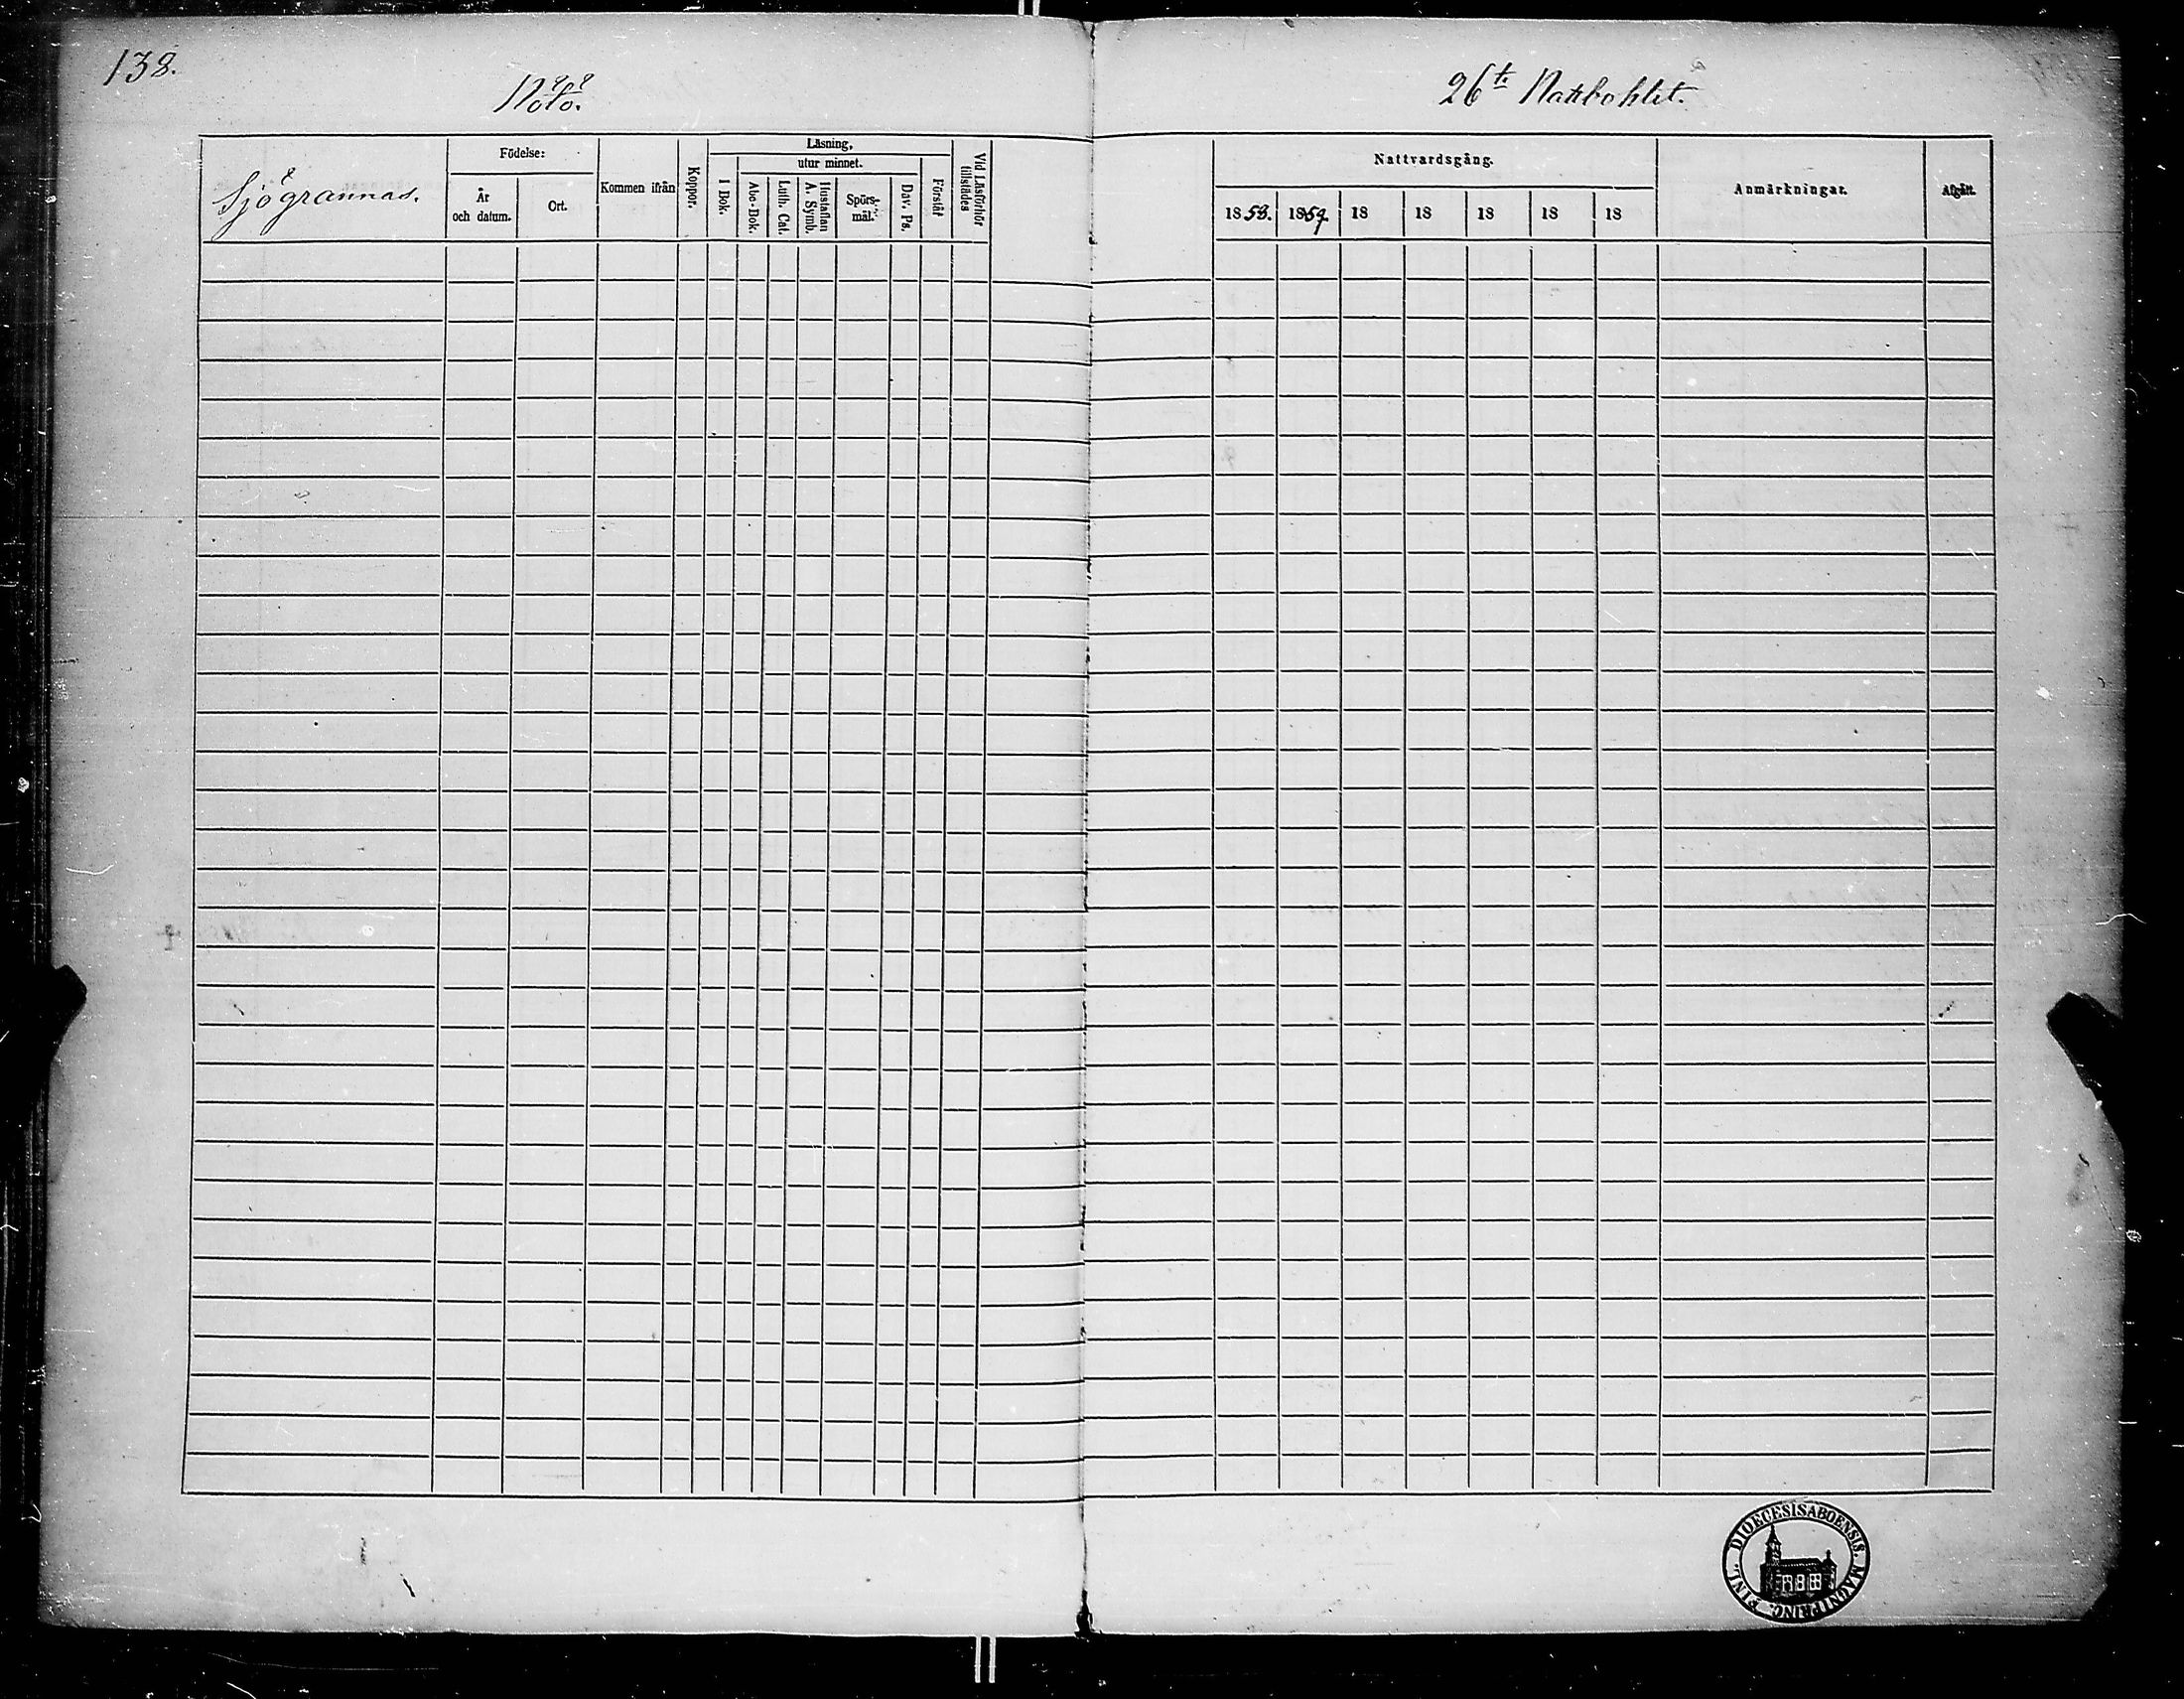 138.
Nötö.
26t. Nattbohlet.
Sjögrannas.
Födelse:
År
och datum.
Ort.
Kommen ifrån
Koppor.
Läsning,
utur minnet.
I Bok.
Abc-Bok.
Luth. Cat.
Hustaflan
A. Symb.
Spörs-
mål.
Dav. Ps.
Förstår
Vid Läsförhör
tillstädes
Nattvardsgång.
1858. 1859. 18 18 18 18 18
Anmärkningar.
Afgått.
DIOECESIS ABOENSIS. MAGNI PRINC. FINL.